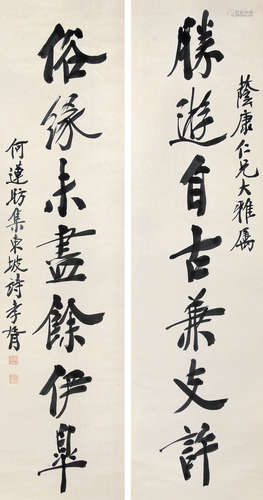 蔭康仁兄大雅屬
勝遊自古兼支許
俗緣未盡餘伊皋
何蓮昉集東坡詩李胥